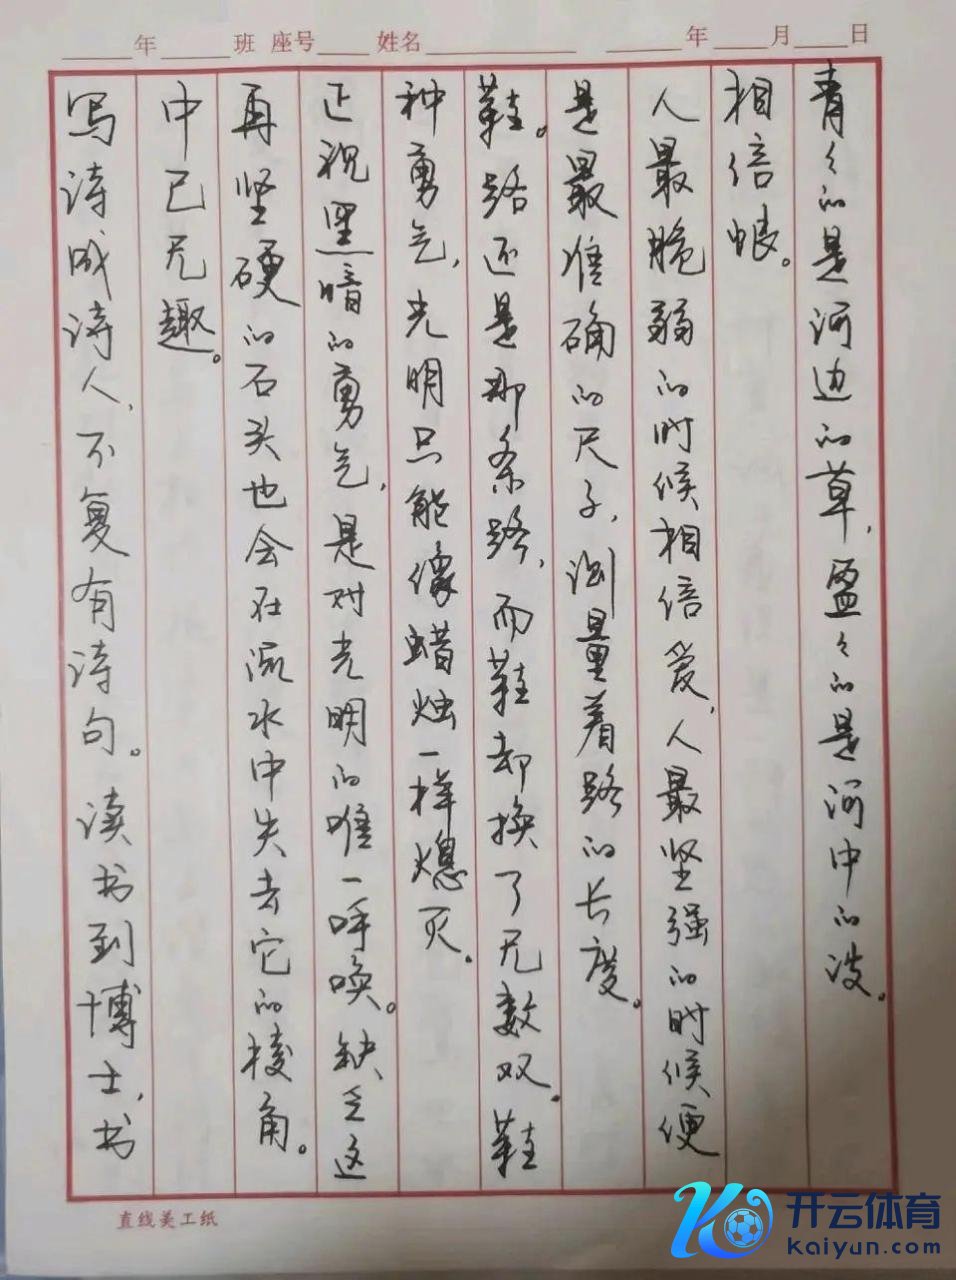 年 班 座号 姓名 年 月 日
写诗成诗人，不复有诗句。读书到博士，书
中已无趣。
再坚硬的石头也会在流水中失去它的棱角。
正视黑暗的勇气，是对光明的唯一呼唤。缺乏这
种勇气，光明只能像蜡烛一样熄灭。
鞋。路还是那条路，而鞋却换了无数双。鞋
是最准确的尺子，测量着路的长度。
人最脆弱的时候相信爱，人最坚强的时候便
相信恨。
青々的是河边的草，盈々的是河中的波。
直线美工纸
开云体育
kaiyun.com